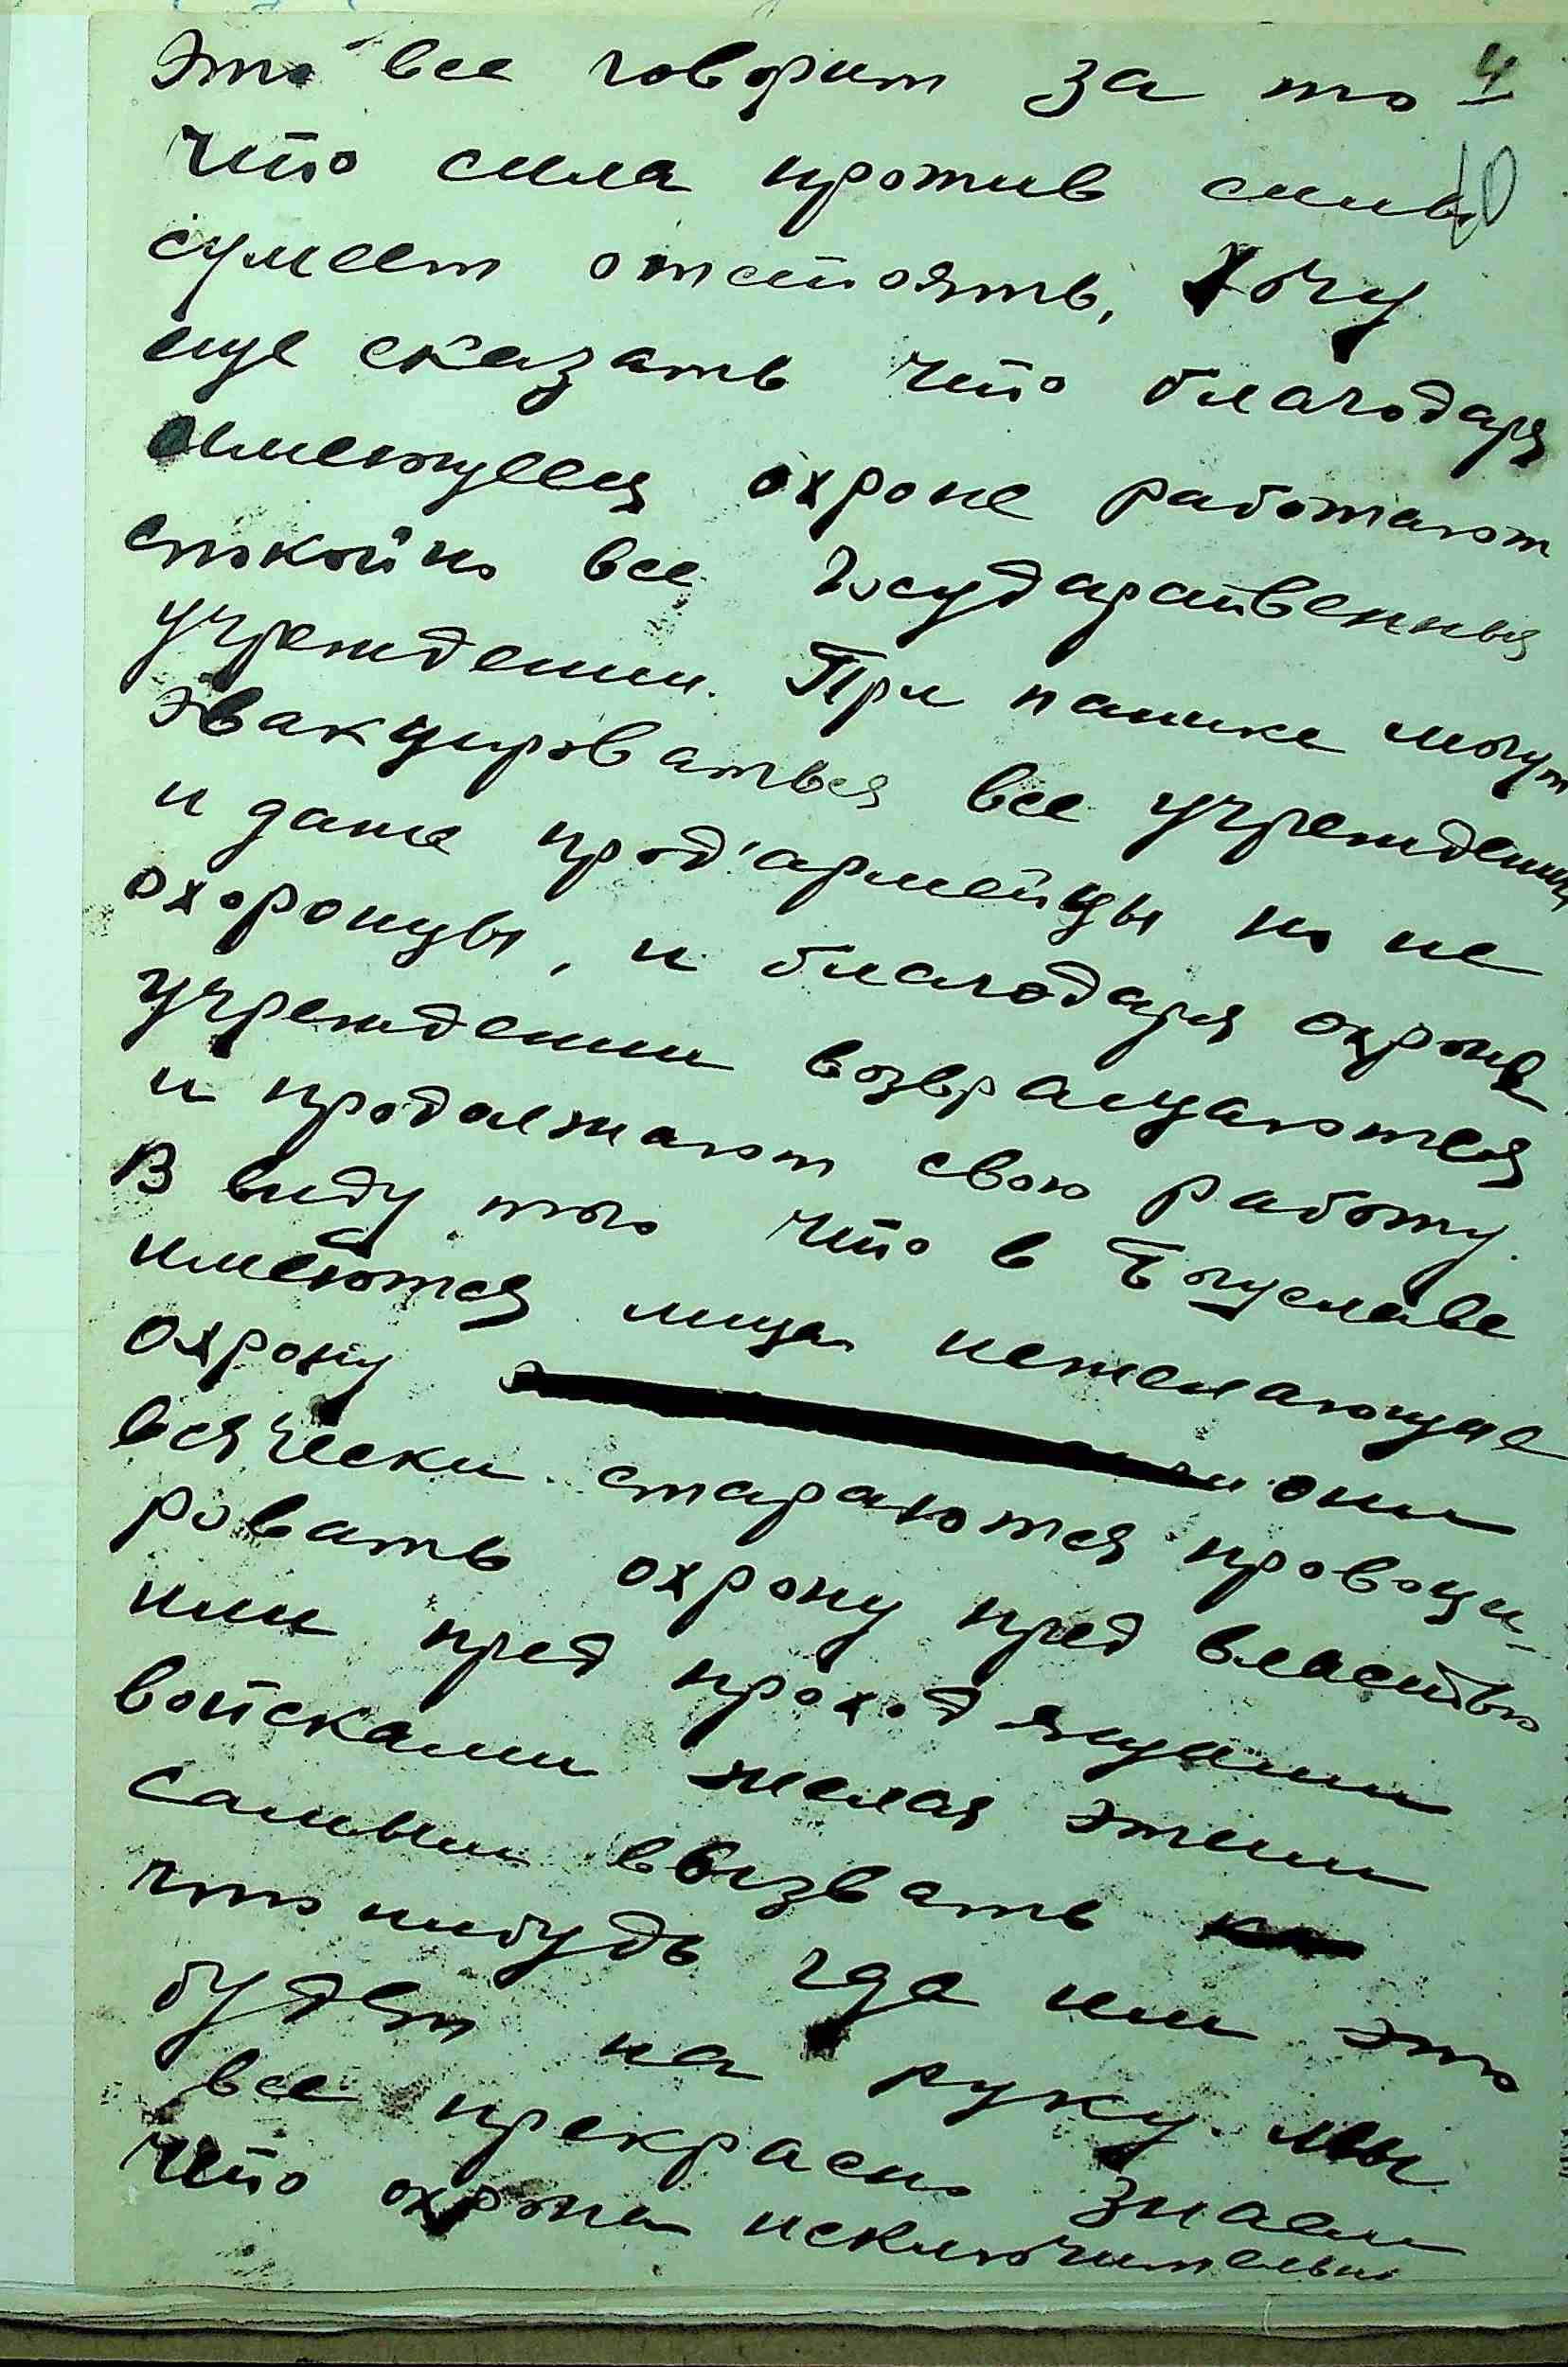 это все говорит за то 4
10
что сила против силы
сумеет отстоять, Хочу
еще сказать что благодаря
имеющееся охроне работают
спокойно все государственныя
учреждении. При панике могут
эвакуироваться все учреждении
и даже прод'армейцы но не
охоронцы, и благодаря охроне
учреждении возвращаются
и продолжают свою работу.
В виду того что в Богуславе
имеются лица нежелающие
охрону они
всячески стараются провоци-
ровать охрону пред властью
или пред проходящими
войсками желая этим
самым ввызвать
что нибудь где им это
будет на руку мы
все прекрасно знаем
что охрона исключительно